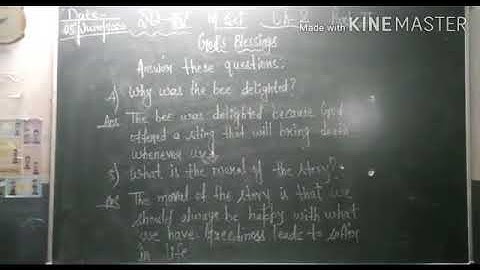 Made with KINEMASTER
Date-
God's Blessings
Answer these questions:
4) Why was the bee delighted?
Ans The bee was delighted because God
offered a sting that will bring death
whenever used
5) What is the moral of the story?
Ans The moral of the story is that we
should always be happy with what
we have. Greediness leads to
in life